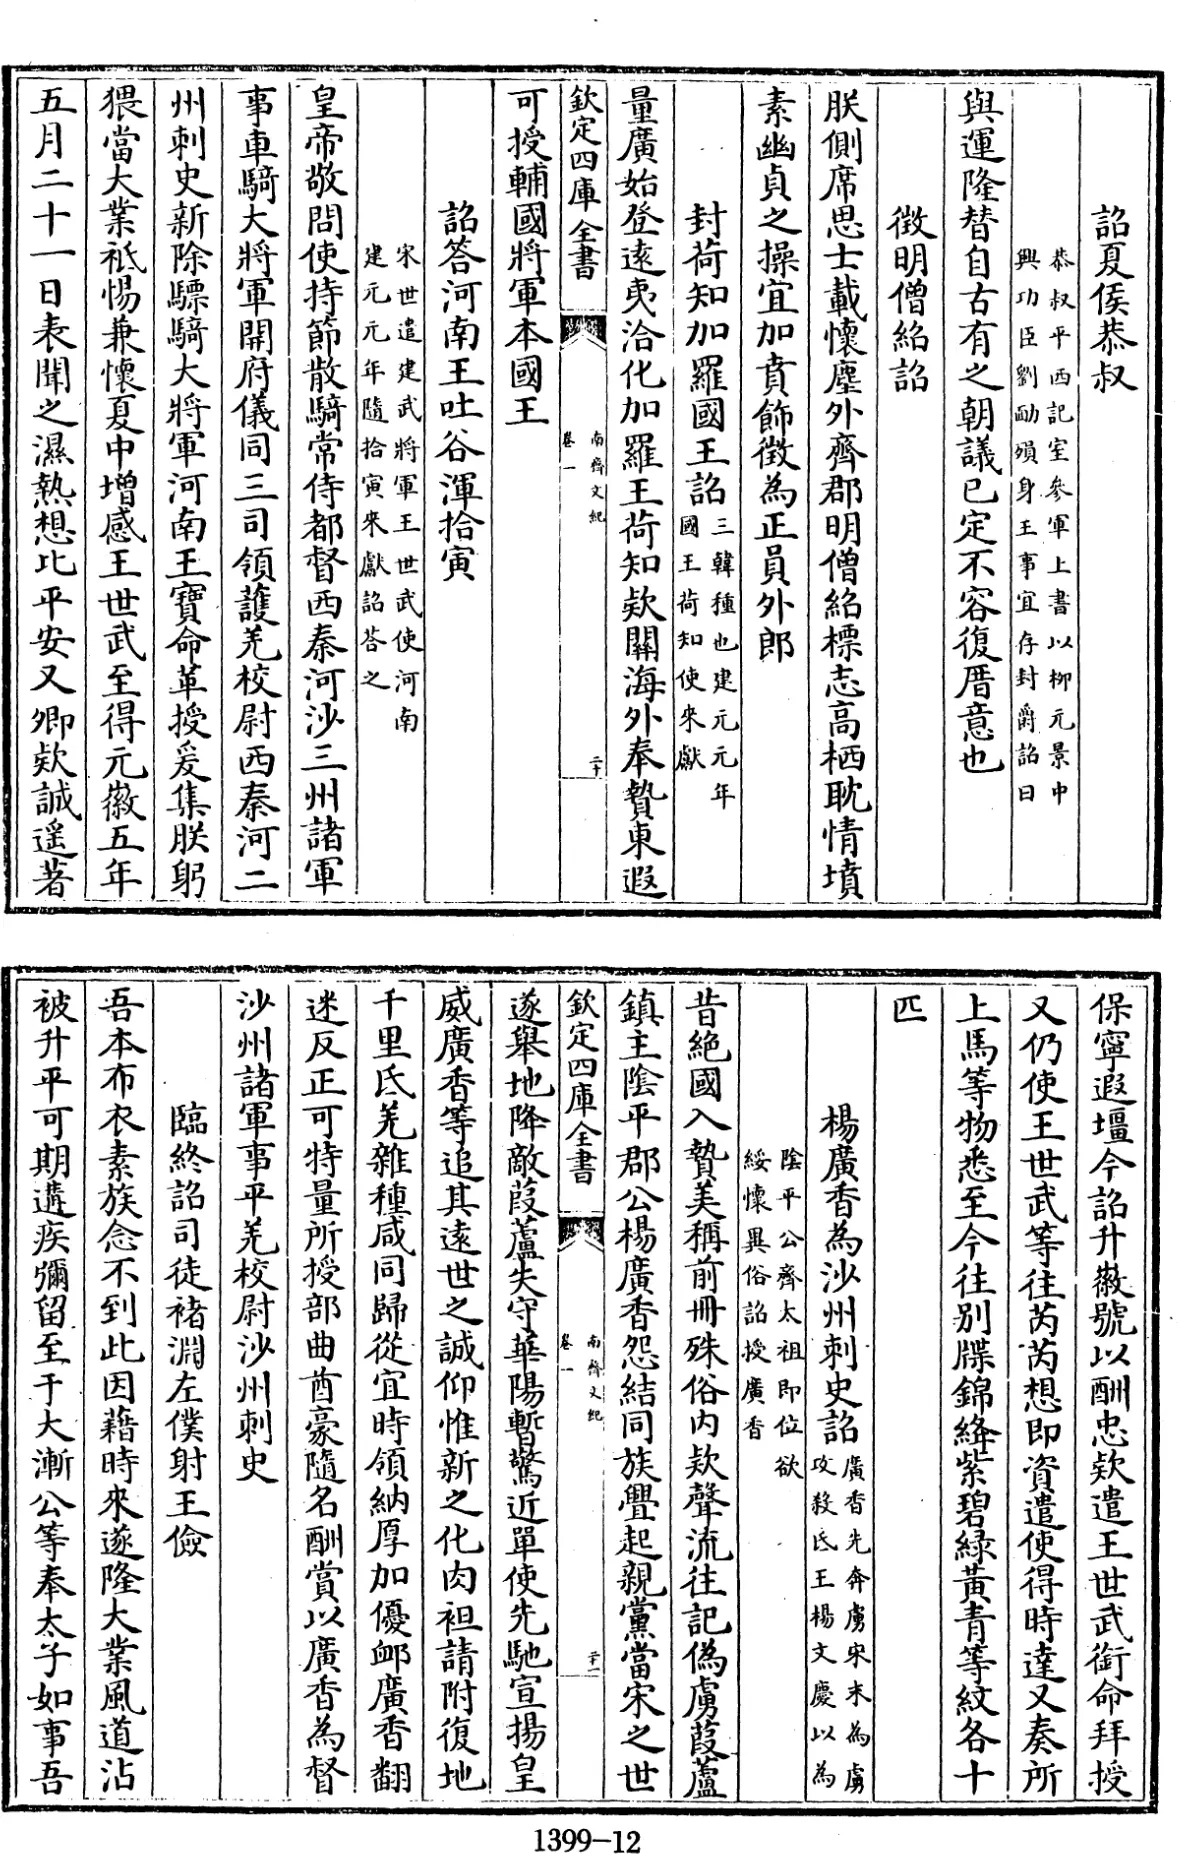 詔夏侯恭叔
恭叔平西記室參軍上書以柳元景中
興功臣劉勔殞身王事宜存封爵詔曰
與運隆替自古有之朝議已定不容復厝意也
徴明僧紹詔
朕側席思士載懷塵外齊郡明僧紹標志高栖耽情墳
素幽貞之操宜加賁飾徴為正員外郎
封荷知加羅國王詔
三韓種也建元元年
國王荷知使來獻
量廣始登遠夷洽化加羅王荷知欵關海外奉贄東遐
欽定四庫全書
南齊文紀
卷一
二十
可授輔國將軍本國王
詔答河南王吐谷渾拾寅
宋世遣建武將軍王世武使河南
建元元年隨拾寅來獻詔答之
皇帝敬問使持節散騎常侍都督西秦河沙三州諸軍
事車騎大將軍開府儀同三司領護羌校尉西秦河二
州刺史新除驃騎大將軍河南王寶命革授爰集朕躬
猥當大業祗惕兼懷夏中增感王世武至得元徽五年
五月二十一日表聞之濕熱想比平安又卿欵誠遥著
保寧遐壃今詔升徽號以酬忠欵遣王世武銜命拜授
又仍使王世武等往芮芮想即資遣使得時達又奏所
上馬等物悉至今往别牒錦絳紫碧緑黄青等紋各十
匹
楊廣香為沙州刺史詔
廣香先奔虜宋末為虜
攻殺氐王楊文慶以為
陰平公齊太祖即位欲
綏懷異俗詔授廣香
昔絶國入贄美稱前冊殊俗内欵聲流往記偽虜葭蘆
鎮主陰平郡公楊廣香怨結同族舋起親黨當宋之世
欽定四庫全書
南齊文紀
卷一
二十一
遂舉地降敵葭蘆失守華陽暫驚近單使先馳宣揚皇
威廣香等追其遠世之誠仰惟新之化肉袒請附復地
千里氐羌雜種咸同歸從宜時領納厚加優䘏廣香翻
迷反正可特量所授部曲酋豪隨名酬賞以廣香為督
沙州諸軍事平羌校尉沙州刺史
臨終詔司徒褚淵左僕射王儉
吾本布衣素族念不到此因藉時來遂隆大業風道沾
被升平可期遘疾彌留至于大漸公等奉太子如事吾
1399-12